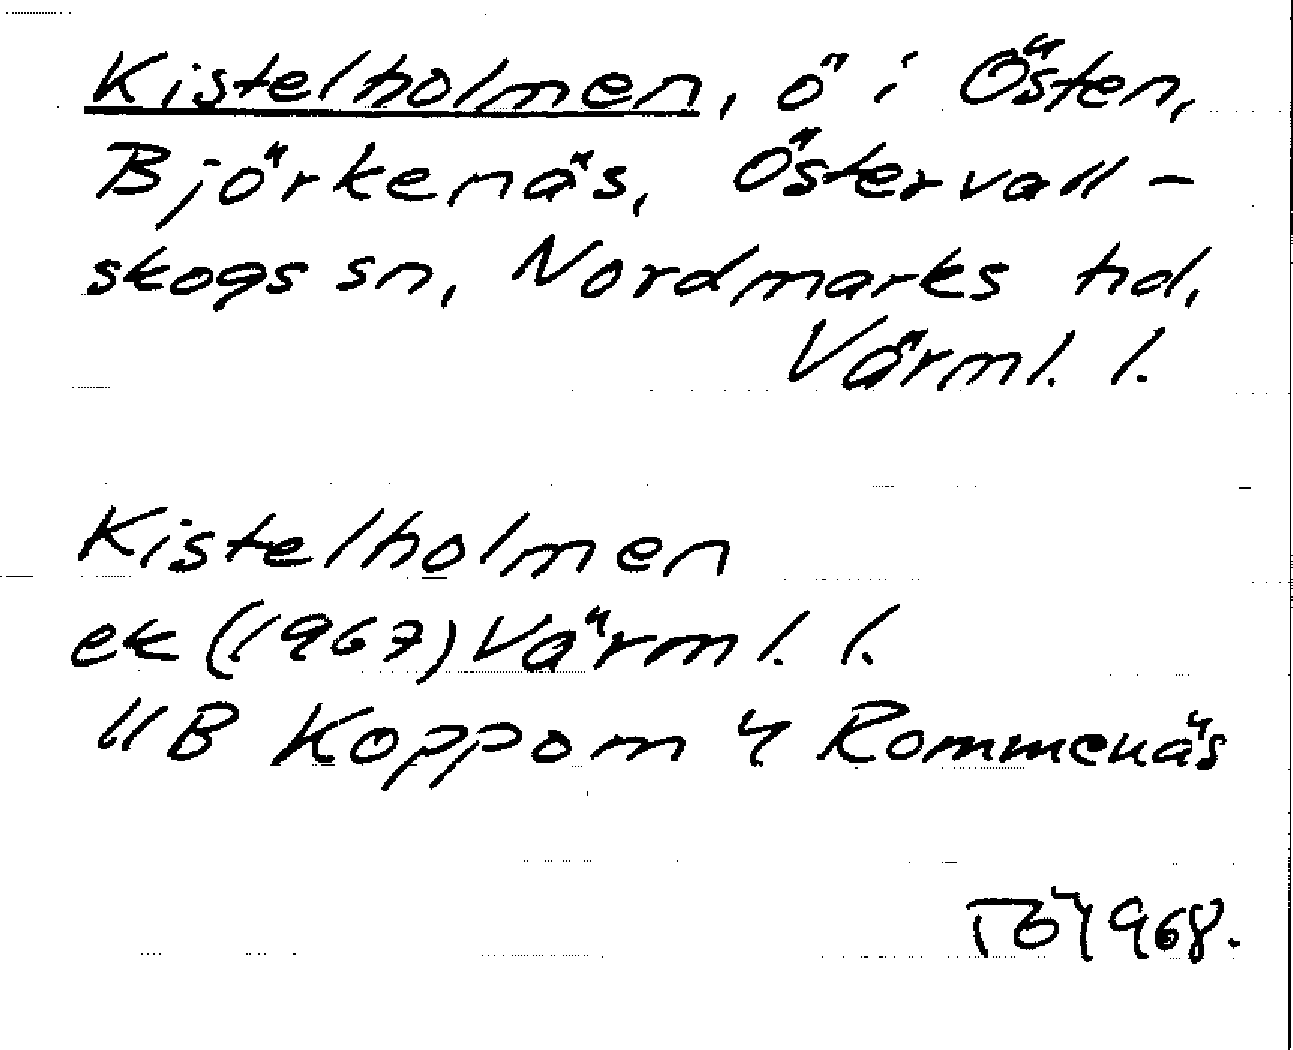 Kistelholmen, ö i Östen,
Björkenäs, Östervall-
skogs sn, Nordmarks hd,
Värml. l.
Kistelholmen
ek (1967) Värml. l.
11B Koppom 4 Rommenäs
1968.